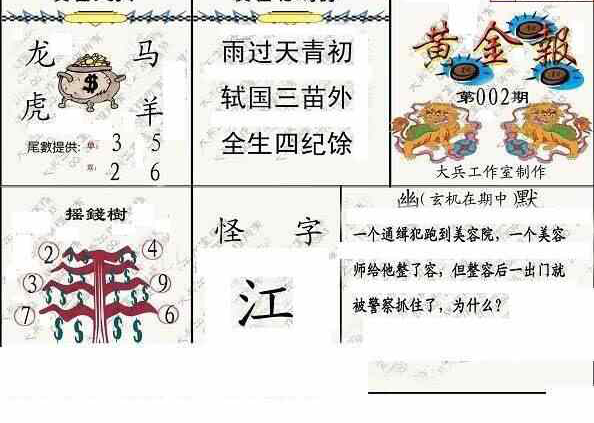 龙 马
虎 羊
尾數提供: 单: 3 5
双: 2 6
雨过天青初
轼国三苗外
全生四纪馀
黄金報
第002期
大兵工作室制作
摇錢樹
2 4
3 9
7 6
怪 字
江
幽(玄机在期中)默
一个通缉犯跑到美容院，一个美容
师给他整了容，但整容后一出门就
被警察抓住了，为什么？